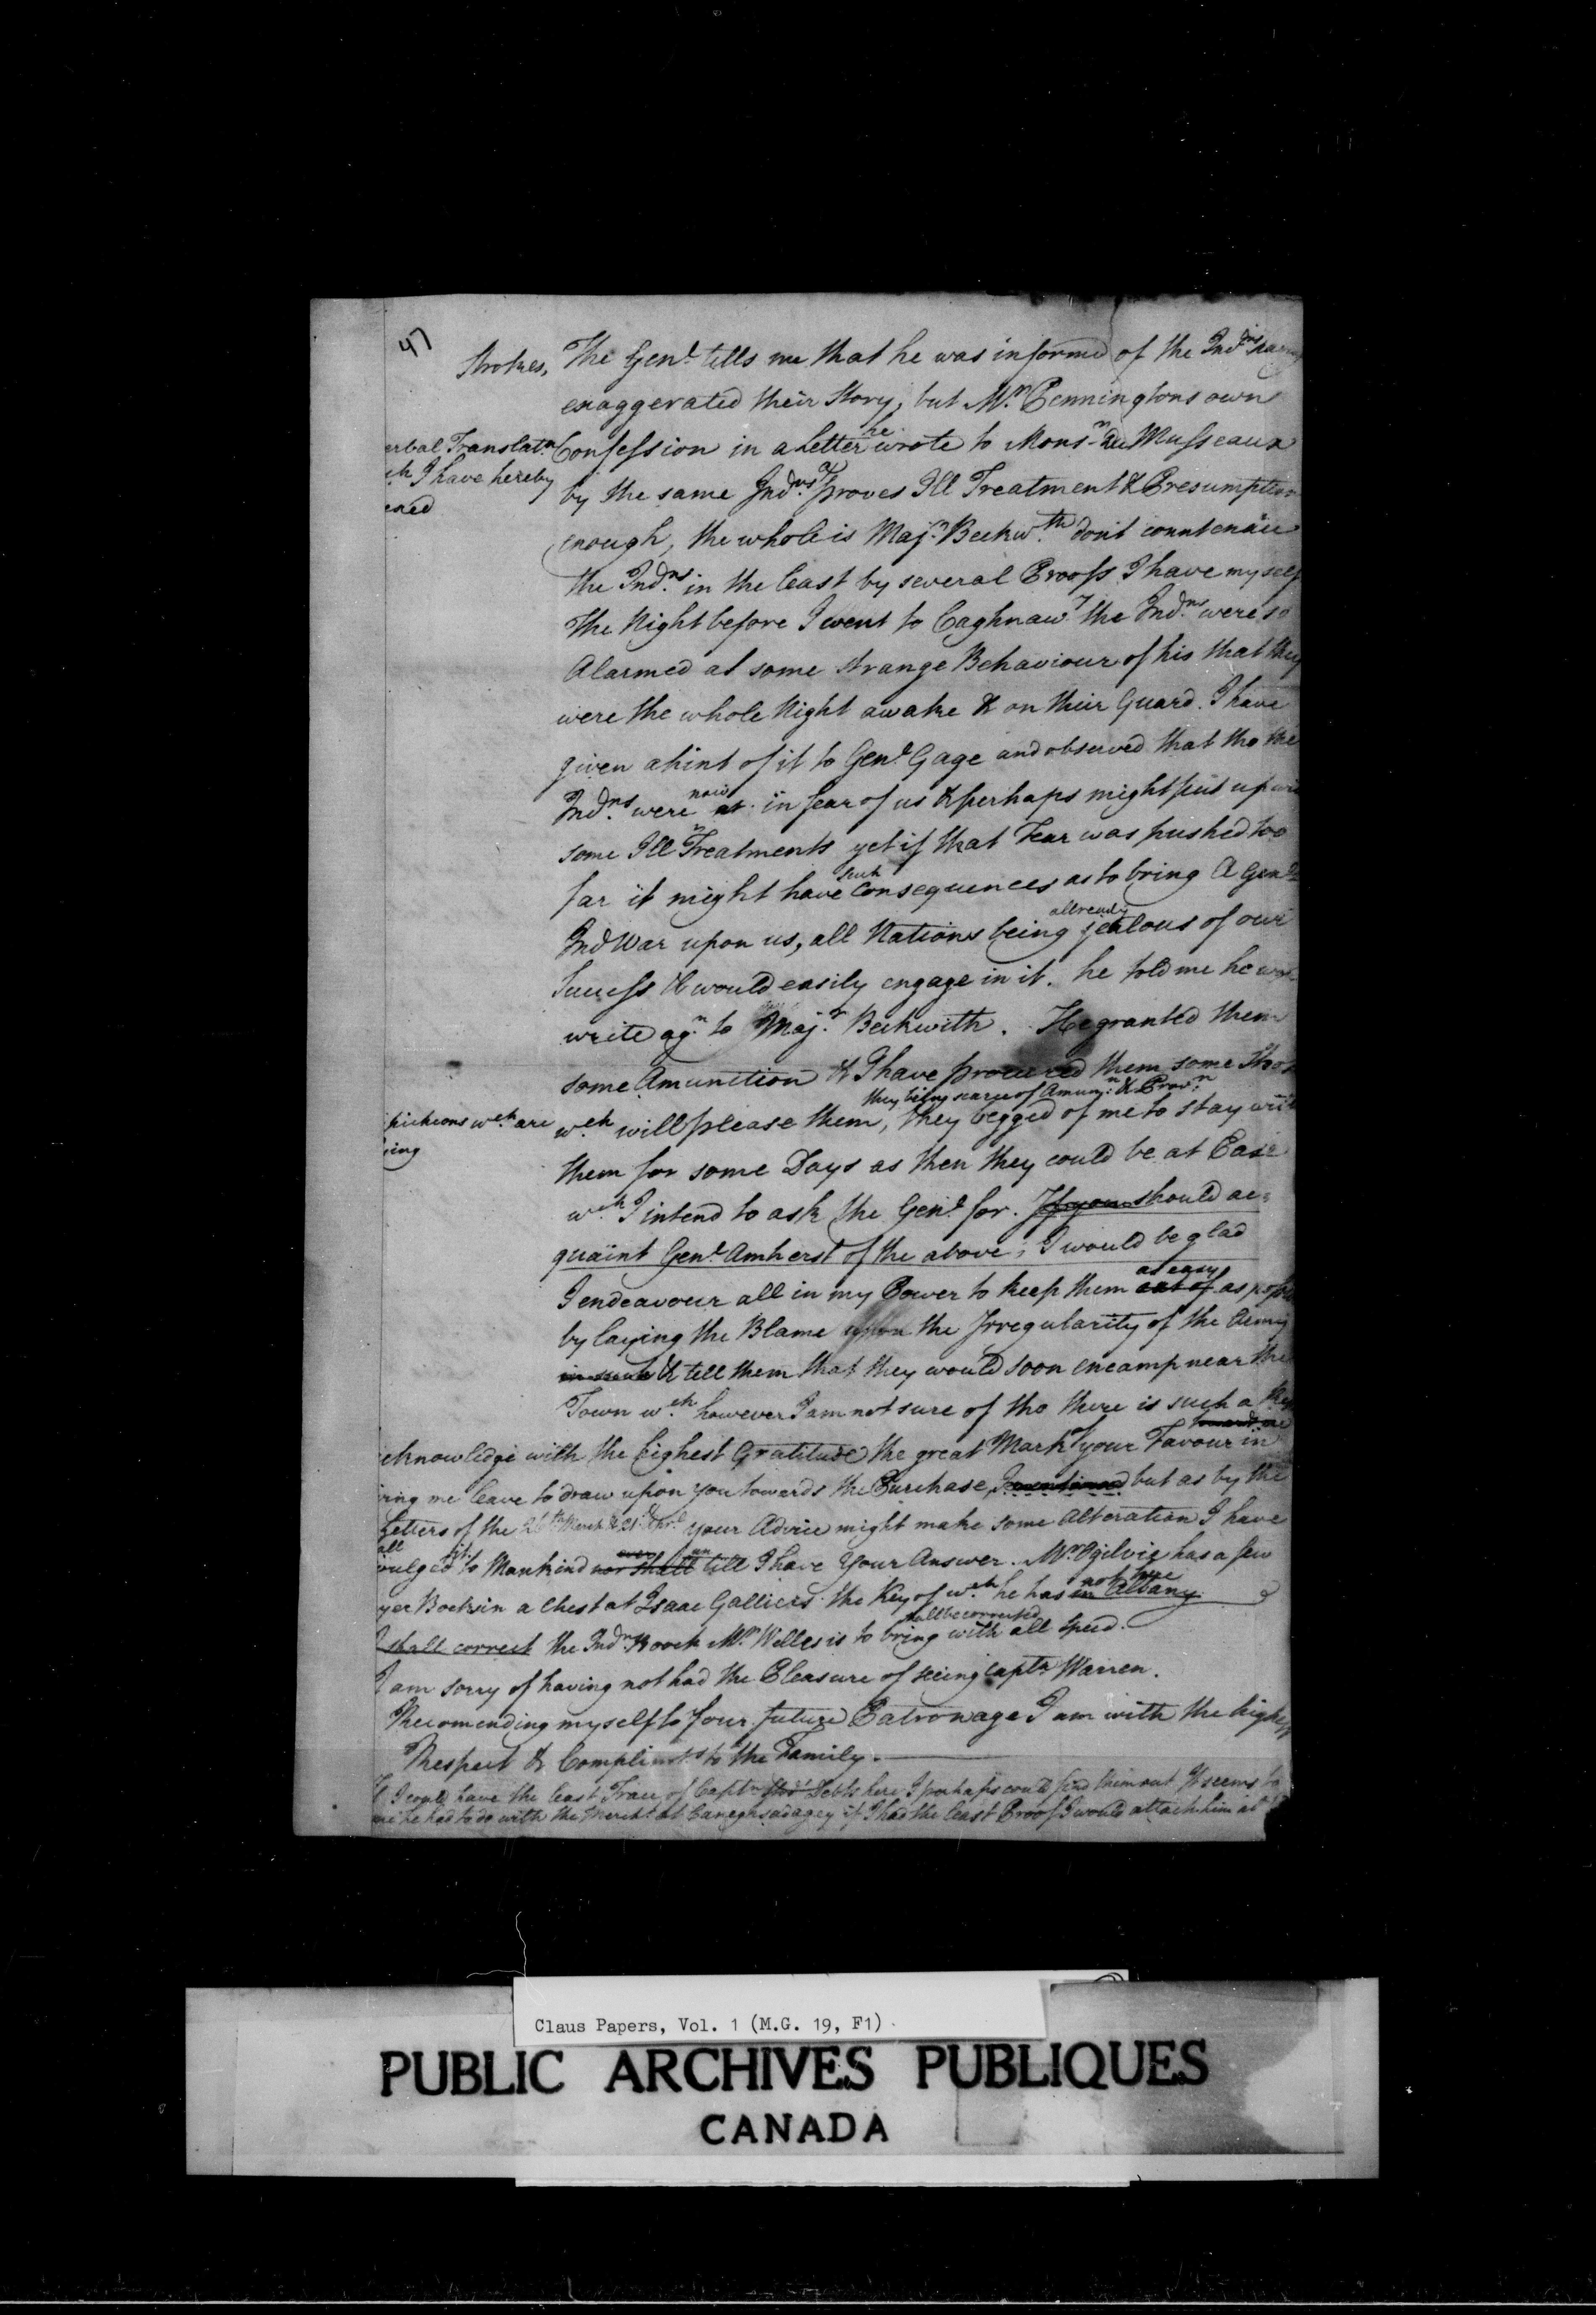 47
Strokes, The Genl. tells me that he was informed of the Indns. having
exaggerated their Story, but Mr. Penningtons own
erbal Translatn. Confession in a Letter he wrote to Monsr. du Musseaux
ch I have hereby
by the same Indns. proves Ill Treatment & Presumption
enough, the whole is Majr. Beckwth. don't countenãce
the Indns. in the least by several Proofs I have myself
The Night before I went to Caghnaw. the Indns. were so
Alarmed at some strange Behaviour of his that they
were the whole Night awake & on their Guard. I have
given a hint of it to Genl. Gage and observed that tho the
Indns. were now in fear of us & perhaps might put up
some Ill Treatments yet if that Fear was pushed too
far it might have such Consequences as to bring A Genl.
Ind War upon us, all Nations being allready jealous of our
Success & would easily engage in it. he told me he
write agn. to Majr. Beckwith. He granted them
some Amunition & I have procured them some
they being scarce of Amun: & Provn.
wch. will please them, they begged of me to stay
wch. are
ing
them for some Days as then they could be at Ease
wch. I intend to ask the Genl. for. If you should ac=
quaint Genl. Amherst of the above; I would be glad
I endeavour all in my Power to keep them as easy out of as
by laying the Blame upon the Irregularity of the Army
in such & tell them that they would soon encamp near the
Town wch. however I am not sure of tho there is such a
cknowledge with the highest Gratitude the great Mark of your Favour in
ing me leave to draw upon you towards the Purchase, I mentioned but as by the
Letters of the 26th March & 21. Aprl. your Advice might make some Alteration I have
vulged it to Mankind nor shall till I have Your Answer. Mr. Ogilvie has a few
yer Books in a Chest at Isaac the Key of wch. he has not here in Albany
shall be corrected
I shall correct the Indn. Book Mr. Welles is to bring with all Speed.
I am sorry of having not had the Pleasure of seeing Captn. Warren.
Recomending myself to Your future Patronage I am with the highest
Respect & Complimts. to the Family.
I could have the least Trace of Captn. Debts here I perhaps could find them out It seems to
me he had to do with the Mercht. at Canaghsadagey if I had the least Proof I would attach him at
Claus Papers, Vol. 1 (M.G. 19, F1)
PUBLIC ARCHIVES PUBLIQUES
CANADA